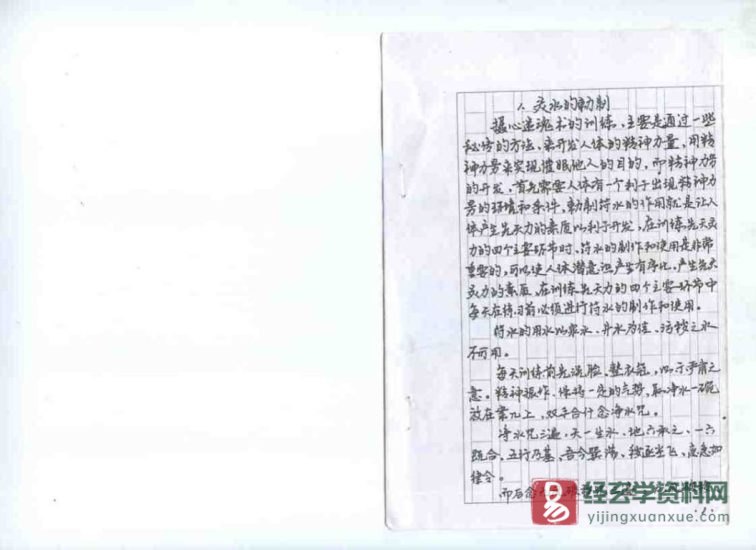 1. 灵水的勅制
摄心迷魂术的训练、主要是通过一些
秘传的方法、来开发人体的精神力量，用精
神力量来实现催眠他人的目的，而精神力量
的开发，首先需要人体有一个利于出现精神力
量的环境和条件，勅制符水的作用就是让人
体产生先天力的素质以利于开发，在训练先天灵
力的四个主要环节时、符水的制作和使用是非常
重要的，可以使人体潜意识产生有序化、产生先天
灵力的素质、在训练先天力的四个主要环节中
每天在练习前必须进行符水的制作和使用。
符水的用水以泉水、井水为佳、污秽之水
不可用。
每天训练前先洗脸、整衣冠，以示严肃之
意。精神振作、保持一定的气势，取净水一碗
放在案几上，双手合什念净水咒。
净水咒三遍，天一生水、地六承之、一六
既合、五行乃基、吾今噀荡、秽逐尘飞，急急如
律令。
而后念
经玄学资料网
yijingxuanxue.com